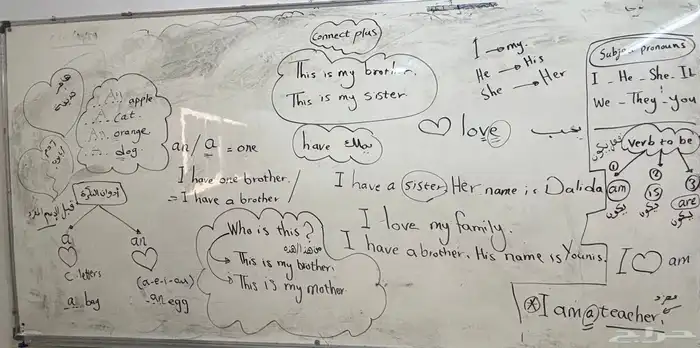 Connect plus
This is my brother.
This is my sister.
I → my.
He → His
She → Her
Subject pronouns
I - He - She - It
We - They - you
An apple
A cat.
An orange.
A dog.
an/a = one
have يملك
love يحب
verb to be
① ② ③
am is are
يكون يكون يكون
I have one brother. /
= I have a brother /
I have a sister Her name is Dalida
I love my family.
I have a brother. His name is Younis.
أدوات النكرة
قبل الاسم المفرد
a an
c. letters (a-e-i-o-u)
a bag an egg
Who is this?
من هذا / هذه
This is my brother.
This is my mother.
I ♡ am
* I am a teacher.
مفرد
حراج